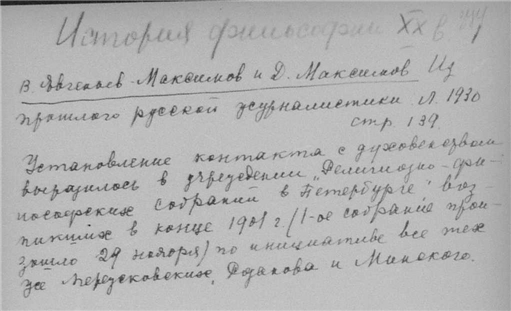 История философии XX в
В. Евгеньев-Максимов и Д. Максимов Из
прошлого русской журналистики. Л. 1930
стр. 139.
Установление контакта с духовенством
выразилось в учреждении „Религиозно-фи-
лософских собраний в Петербурге" воз-
никших в конце 1901 г. (1-ое собрание прои-
зошло 29 ноября) по инициативе все тех
же Мережковских, Розанова и Минского.